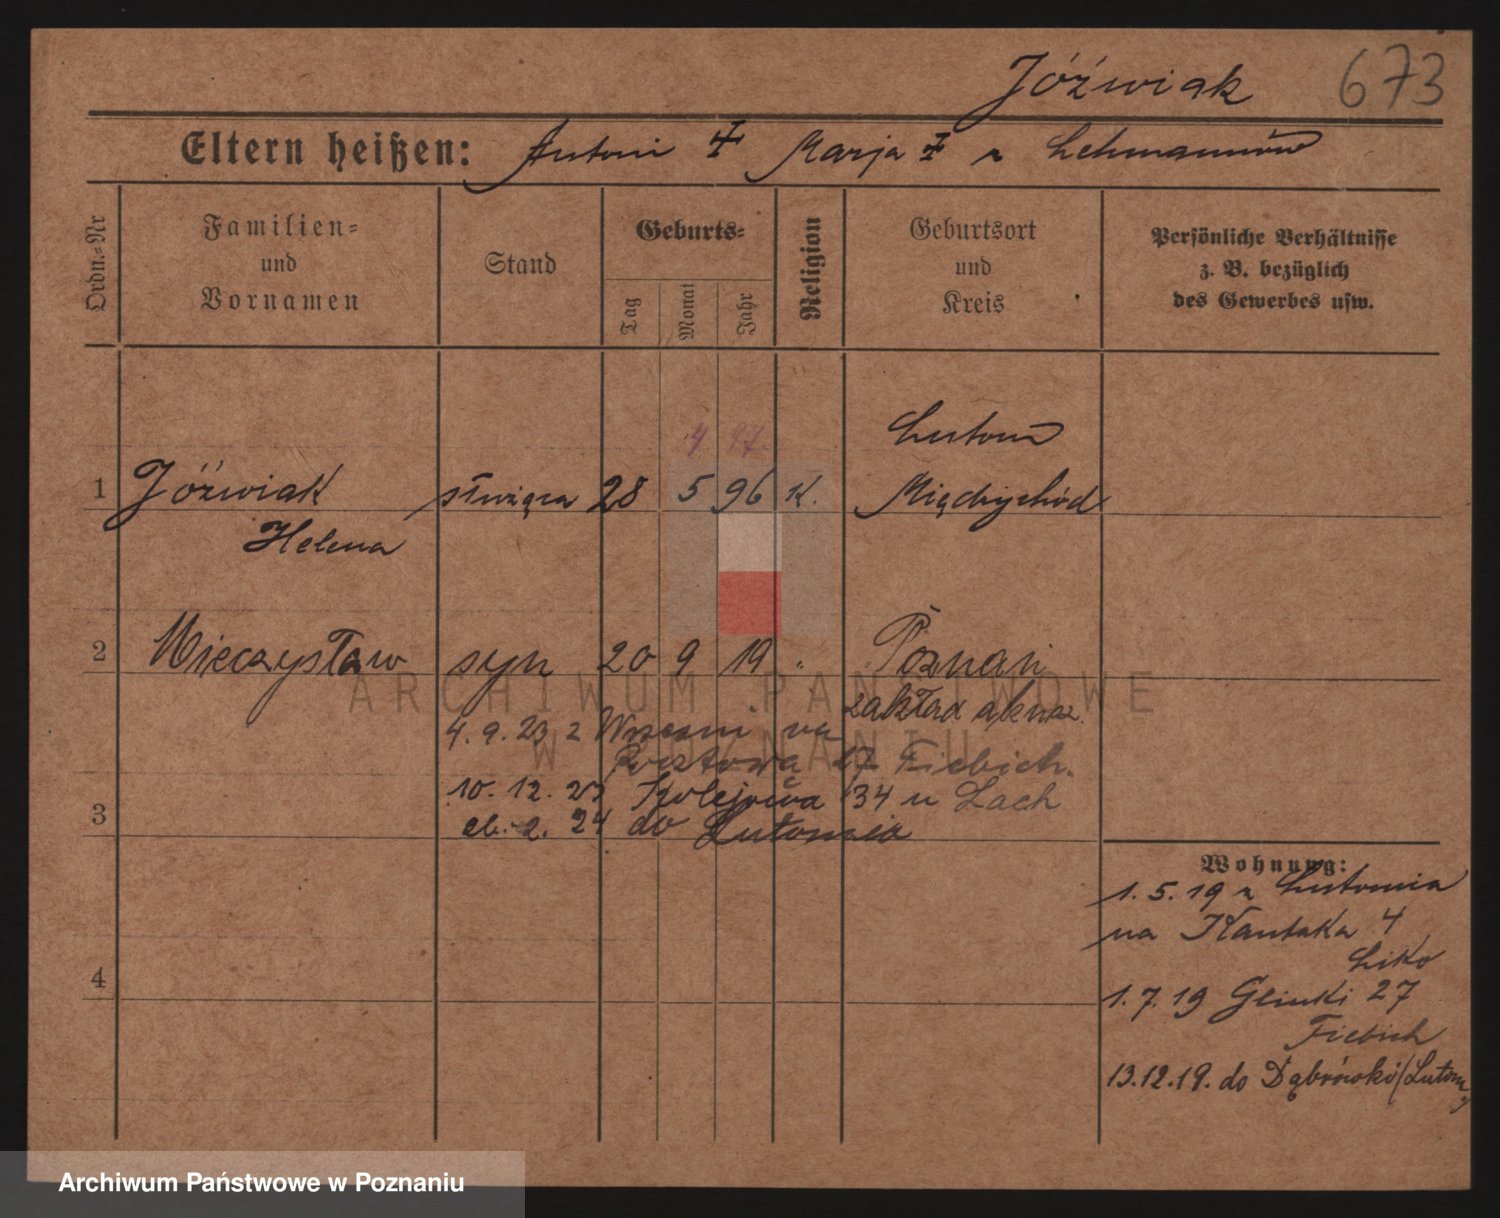 Jóźwiak 673
Eltern heißen: Antoni Marja z Lehmannów
Ordn.-Nr
Familien- und Vornamen
Stand
Geburts-
Tag
Monat
Jahr
Religion
Geburtsort und Kreis
Persönliche Verhältnisse z. B. bezüglich des Gewerbes usw.
4. 97.
Lutom
1 Jóźwiak służąca 28 5 96 K. Międzychód
Helena
2 Mieczysław syn 20 9 19 " Poznań
zakład akusz.
4. 9. 23 z Wrześni na
Pocztową 27 Fiebich.
10. 12. 23 Kolejowa 34 u Lach
3
2. 24 do Lutomia
Wohnung:
1. 5. 19 z Lutomia
na Kantaka 4
Liko
4
1. 7. 19 Glinki 27
Fiebich
13.12.19. do Dąbrówki (Lutom
ARCHIWUM PAŃSTWOWE
W POZNANIU
Archiwum Państwowe w Poznaniu